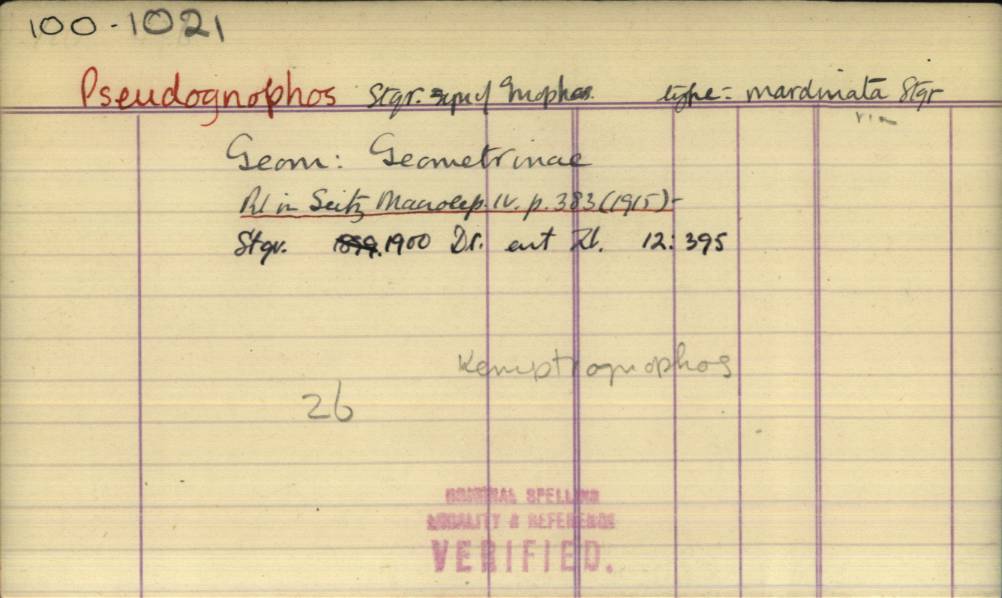 100-1021
Pseudognophos Stgr. syn of Gnophos. type = mardinata Stgr
ria
Geom: Geometrinae
in Seitz Macrolep. IV. p. 383 (1915)-
Stgr. 1899. 1900 Dt. ent Zt. 12: 395
Kemptrognophos
26
ORIGINAL SPELLING
LOCALITY & REFERENCE
VERIFIED.